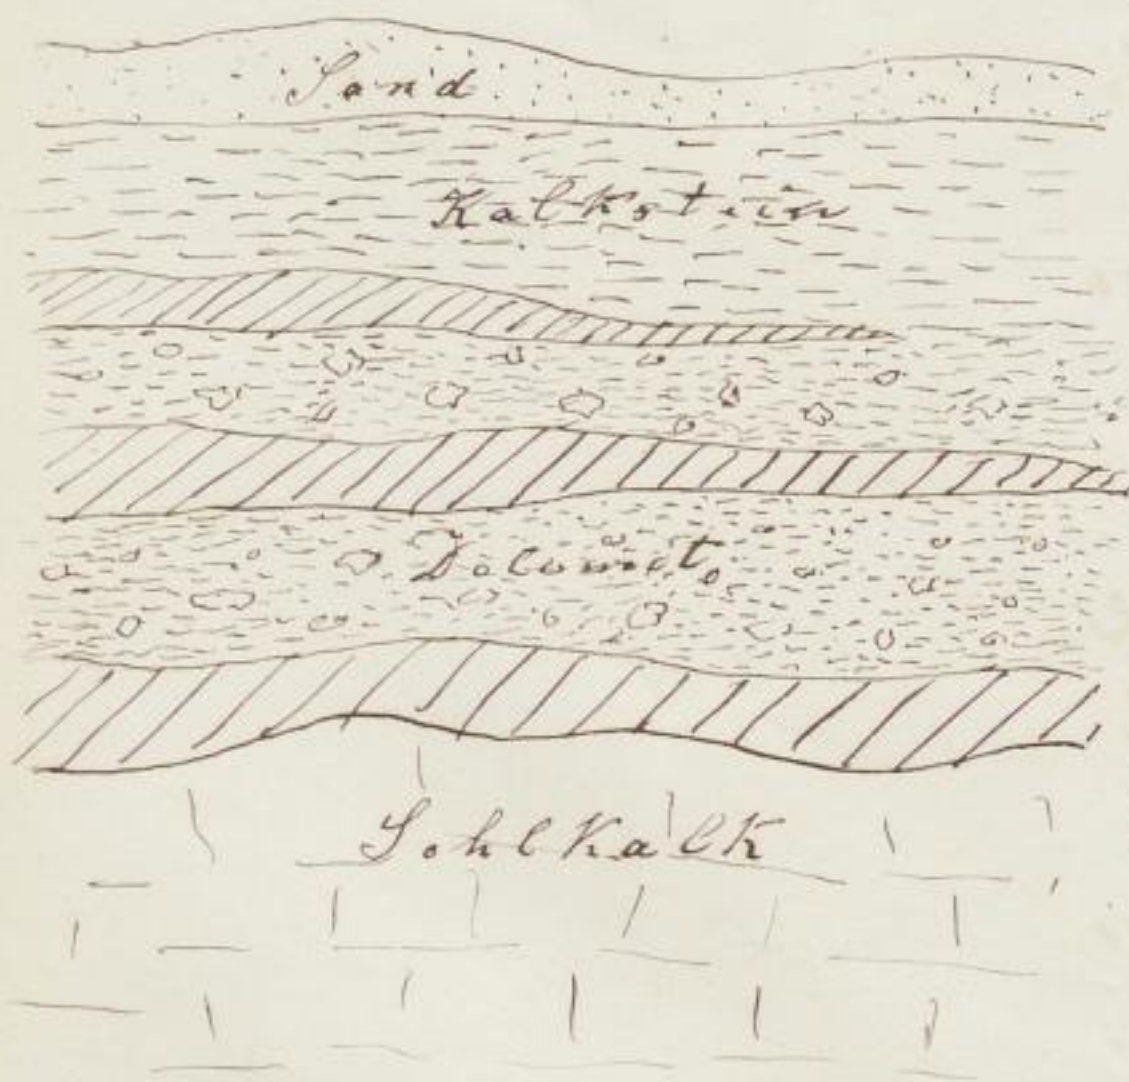 Sand
Kalkstein
Dolomit
Sohlkalk